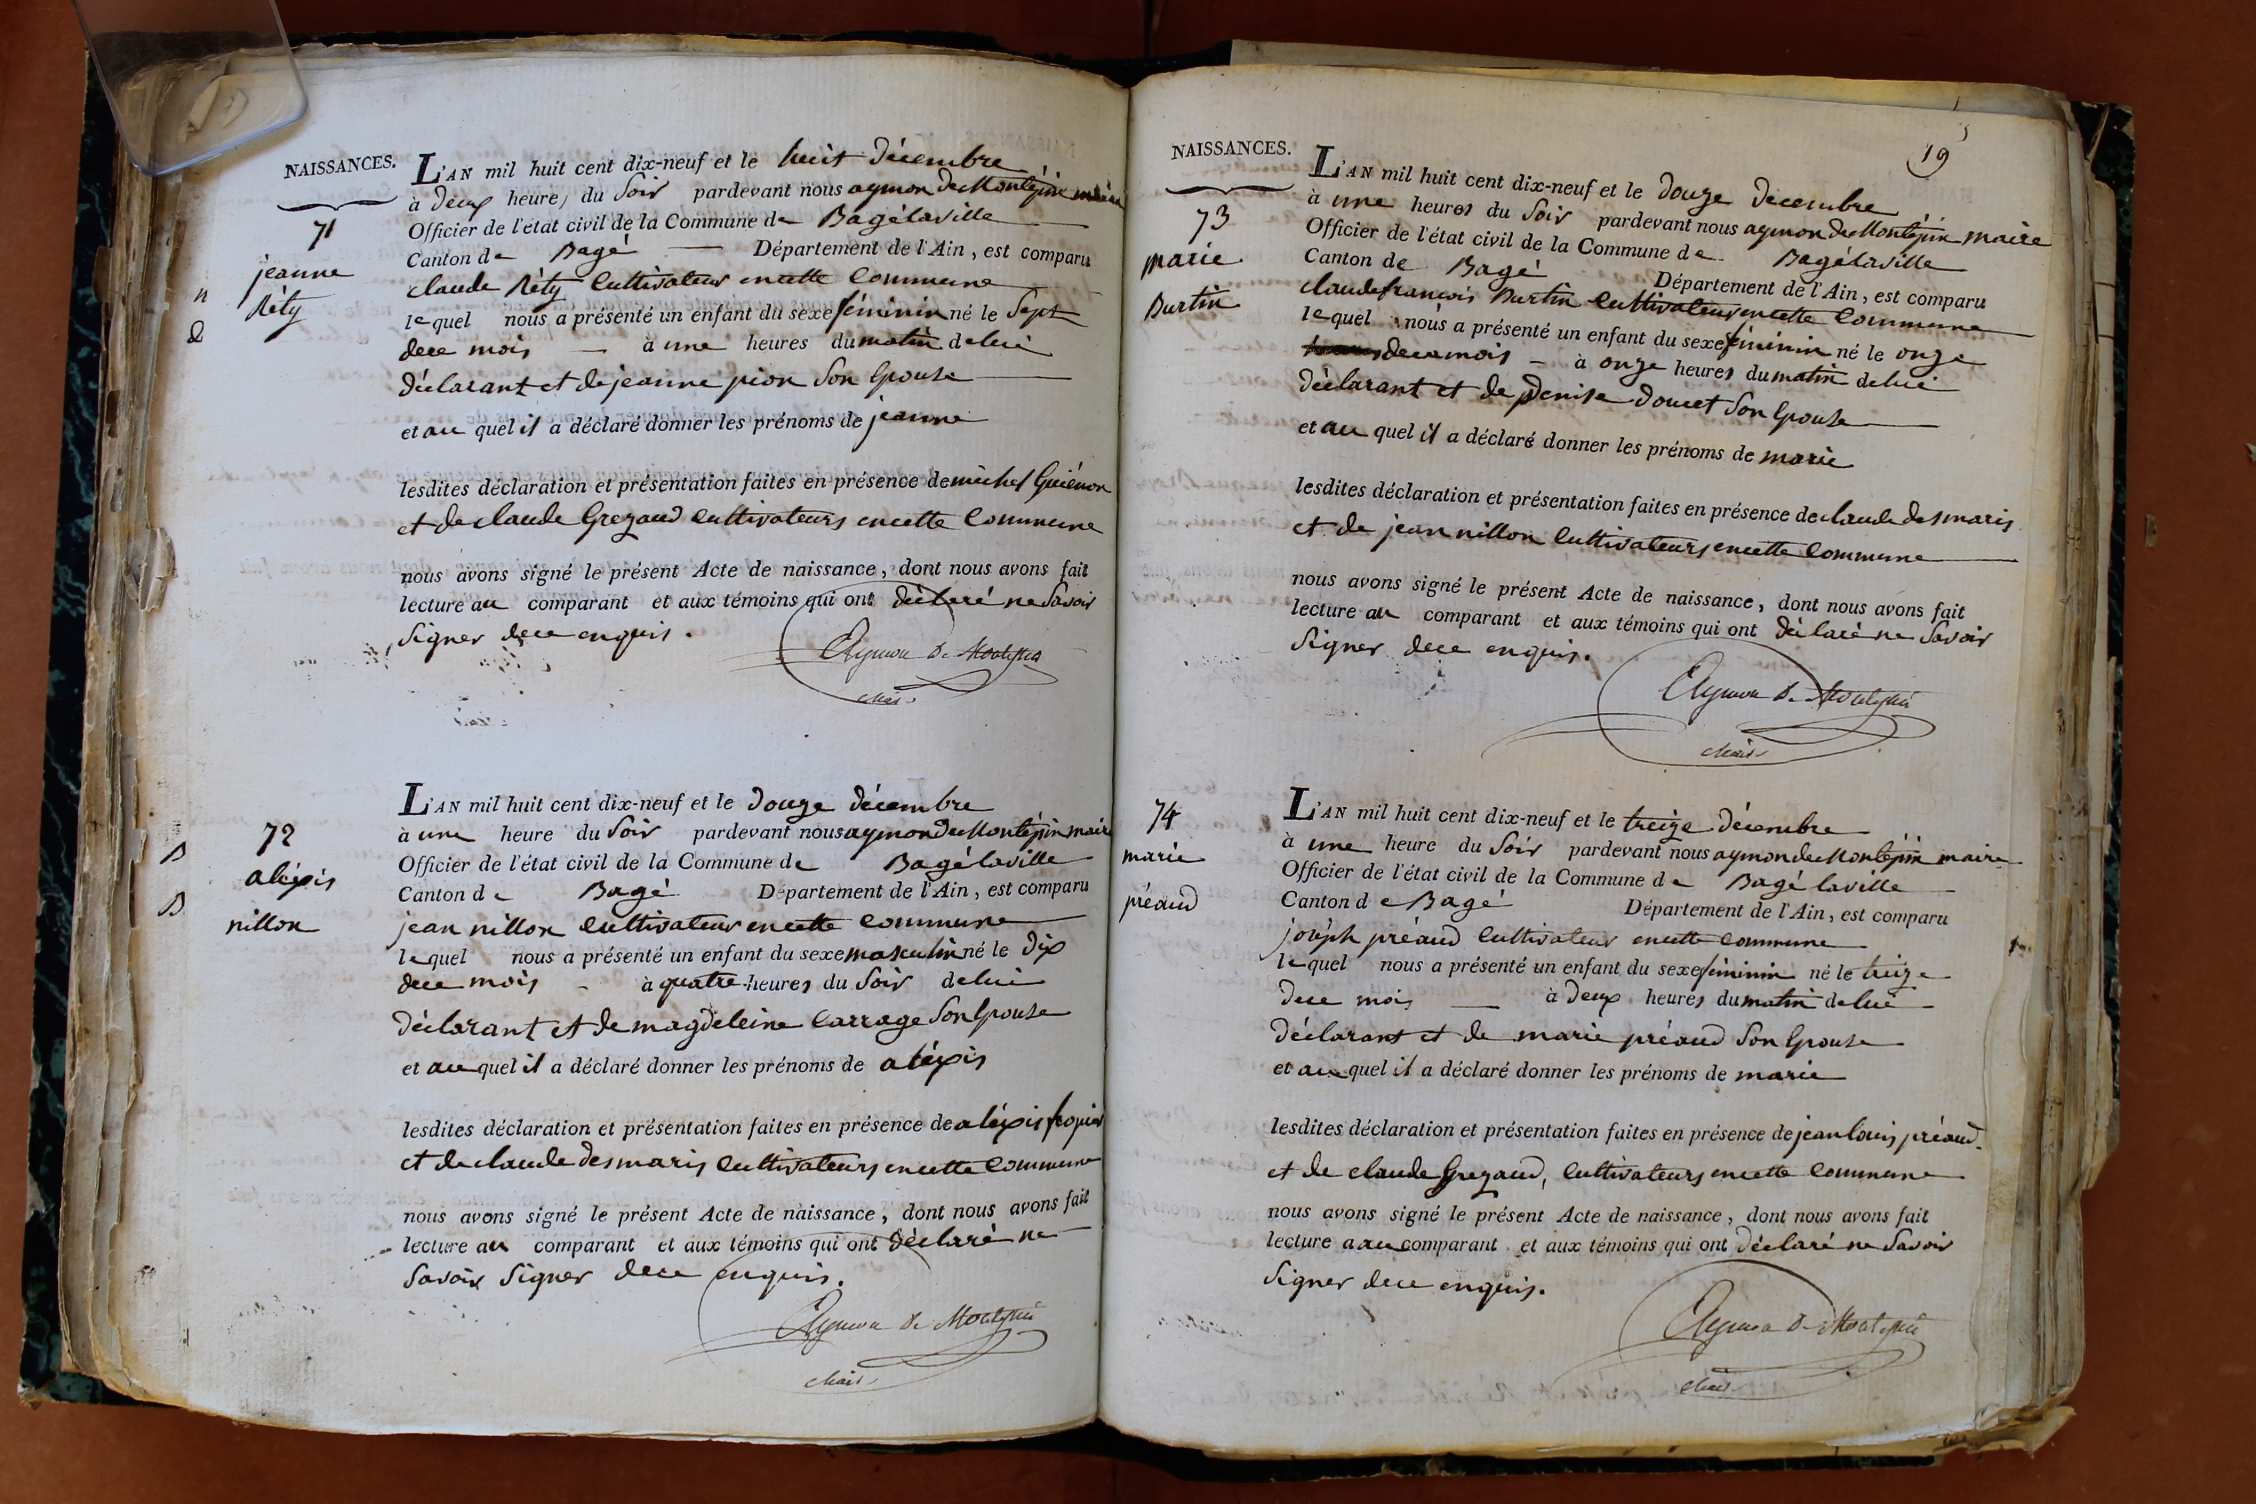 NAISSANCES.
71
jeanne
Réty
L'AN mil huit cent dix-neuf et le huit décembre
à deux heures du soir pardevant nous aymon de Montépin maire
Officier de l'état civil de la Commune de Bagé la ville
Canton de Bagé — Département de l'Ain, est comparu
claude Réty cultivateur en cette commune
lequel nous a présenté un enfant du sexe féminin né le sept
de ce mois — à une heures du matin de lui
déclarant et de jeanne pion son épouse
et au quel il a déclaré donner les prénoms de jeanne
lesdites déclaration et présentation faites en présence de michel Guiénon
et de claude Gregaud cultivateurs en cette commune
nous avons signé le présent Acte de naissance, dont nous avons fait
lecture au comparant et aux témoins qui ont déclaré ne savoir
signer de ce enquis.
Aymon de Montépin
Maire
72
aléxis
nillon
L'AN mil huit cent dix-neuf et le douze décembre
à une heure du soir pardevant nous aymon de Montépin maire
Officier de l'état civil de la Commune de Bagé la ville
Canton de Bagé Département de l'Ain, est comparu
jean nillon cultivateur en cette commune
lequel nous a présenté un enfant du sexe masculin né le dix
de ce mois - à quatre heures du soir de lui
déclarant et de magdeleine carrage son épouse
et au quel il a déclaré donner les prénoms de aléxis
lesdites déclaration et présentation faites en présence de aléxis
et de claude desmaris cultivateurs en cette commune
nous avons signé le présent Acte de naissance, dont nous avons fait
lecture au comparant et aux témoins qui ont déclaré ne
savoir signer de ce enquis.
Aymon de Montépin
Maire
19
NAISSANCES.
73
marie
Burtin
L'AN mil huit cent dix-neuf et le douze décembre
à une heures du soir pardevant nous aymon de Montépin maire
Officier de l'état civil de la Commune de Bagé la ville
Canton de Bagé Département de l'Ain, est comparu
claude françois Burtin cultivateur en cette commune
lequel nous a présenté un enfant du sexe féminin né le onze
de ce mois - à onze heures du matin de lui
déclarant et de Denise doucet son épouse
et au quel il a déclaré donner les prénoms de marie
lesdites déclaration et présentation faites en présence de claude desmaris
et de jean nillon cultivateurs en cette commune
nous avons signé le présent Acte de naissance, dont nous avons fait
lecture au comparant et aux témoins qui ont déclaré ne savoir
signer de ce enquis.
Aymon de Montépin
Maire
74
marie
préaud
L'AN mil huit cent dix-neuf et le treize décembre
à une heure du soir pardevant nous aymon de Montépin maire
Officier de l'état civil de la Commune de Bagé la ville
Canton de Bagé Département de l'Ain, est comparu
joseph préaud cultivateur en cette commune
lequel nous a présenté un enfant du sexe féminin né le treize
de ce mois — à deux heures du matin de lui
déclarant et de marie préaud son épouse
et au quel il a déclaré donner les prénoms de marie
lesdites déclaration et présentation faites en présence de jean louis préaud
et de claude Gregaud, cultivateurs en cette commune
nous avons signé le présent Acte de naissance, dont nous avons fait
lecture a au comparant et aux témoins qui ont déclaré ne savoir
signer de ce enquis.
Aymon de Montépin
Maire